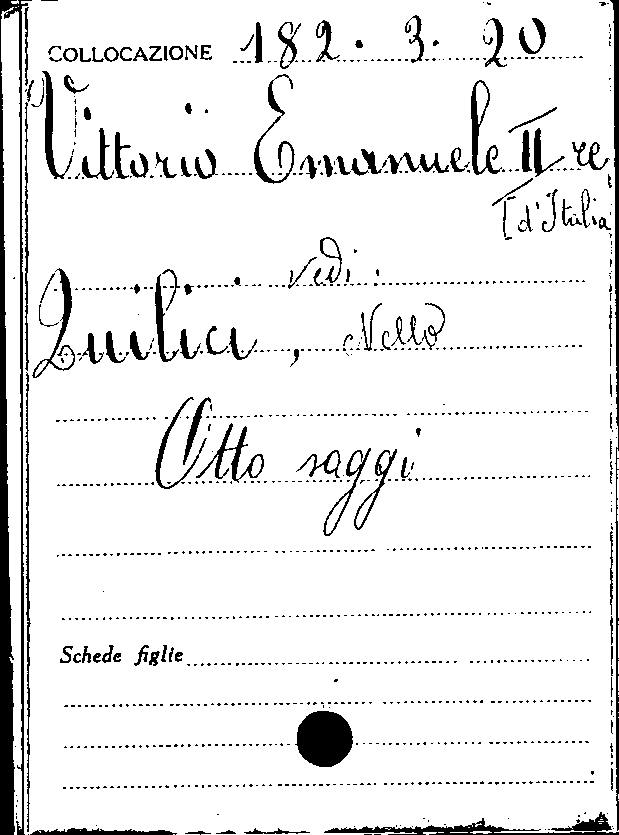 COLLOCAZIONE 182. 3. 20
Vittorio Emanuele II re
[d'Italia
vedi:
Quilici, Nello
Otto saggi
Schede figlie